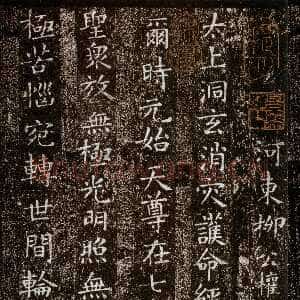 河東柳公權
太上洞玄消灾護命經
爾時元始天尊在七
聖衆放無極光明照無
極苦惱宛轉世間輪